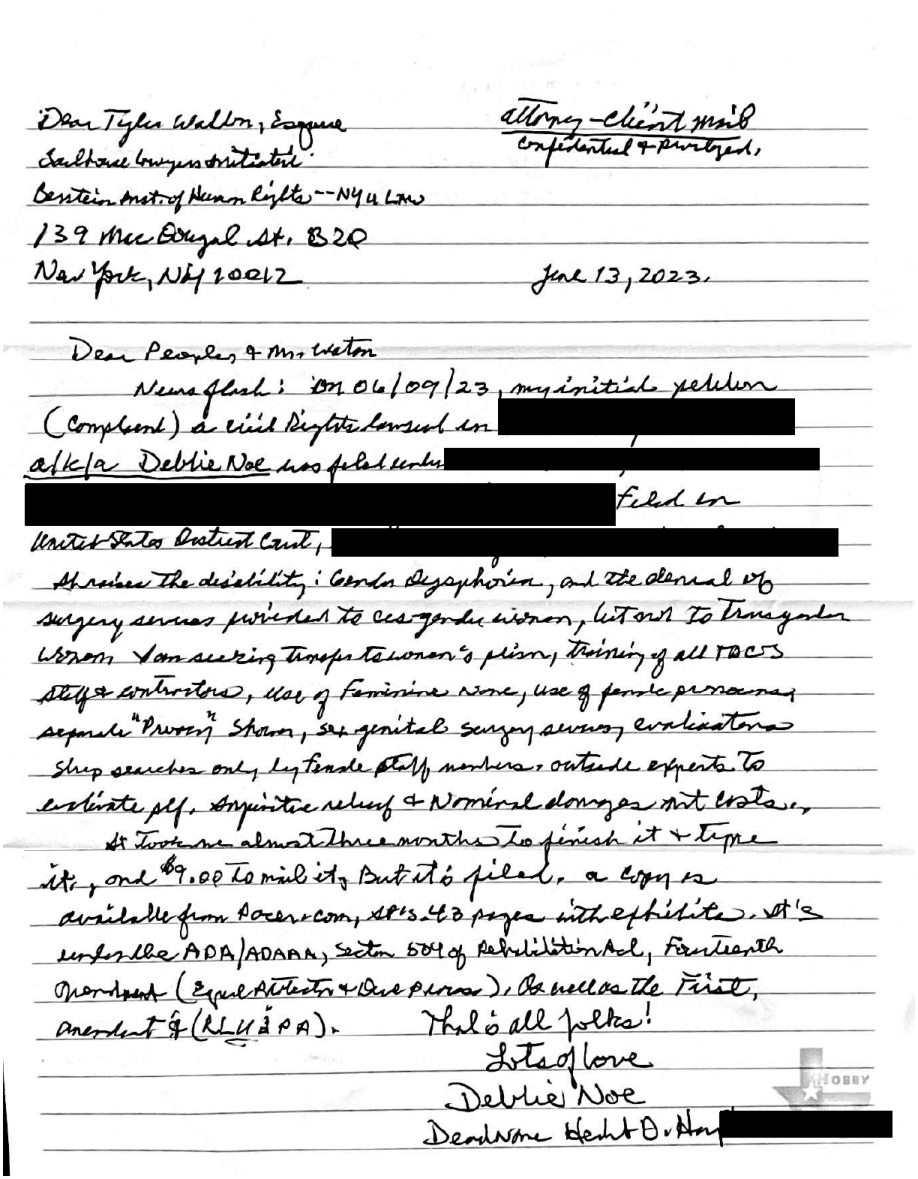 Dear Tyler Walton, Esquire
attorney-client mail
Confidential & Privileged.
Jailhouse Lawyers Initiative
Berstein Inst. of Human Rights--NYU Law
139 MacDougal St. B20
New York, NY 10012
June 13, 2023.
Dear Peoples, & Mr. Walton
News flash: On 06/09/23, my initial petition
(Complaint) a civil Rights lawsuit in
a/k/a Debbie Noe was filed under
filed in
United States District Court,
It raises the disability: Gender Dysphoria, and the denial of
surgery services provided to cis-gender women, but not to Transgender
Women I am seeking transfer to women's prison, training of all TDCJ's
staff & contractors, use of Feminine name, use of female pronouns,
separate "Privacy" Shower, sex genital surgery services, evaluations
Strip searches only by female staff members, outside experts to
evaluate self. Injunctive relief & Nominal damages and costs.
It Took me almost Three months to finish it & type
it, and $9.00 to mail it, But it's filed. a copy is
available from Pacer.com, It's 43 pages with exhibits. It's
under the ADA/ADAAA, Section 504 of Rehabilitation Act, Fourteenth
Amendment (Equal Protection & Due Process), As well as the First,
Amendment & (RLUIPA). That's all folks!
Lots of love
Debbie Noe
Deadname
HOBBY